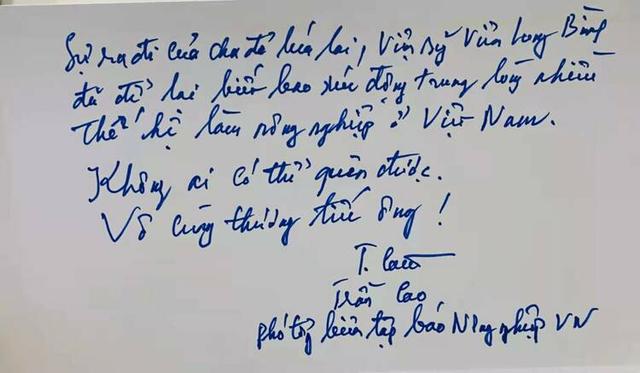 Sự ra đi của cha đẻ lúa lai, Viện sỹ Viên Long Bình
đã để lại biết bao xúc động trong lòng nhiều
thế hệ làm nông nghiệp ở Việt Nam.
Không ai có thể quên được.
Vô cùng thương tiếc ông!
T. Cao
Trần Cao
phó tổng biên tập báo Nông nghiệp VN